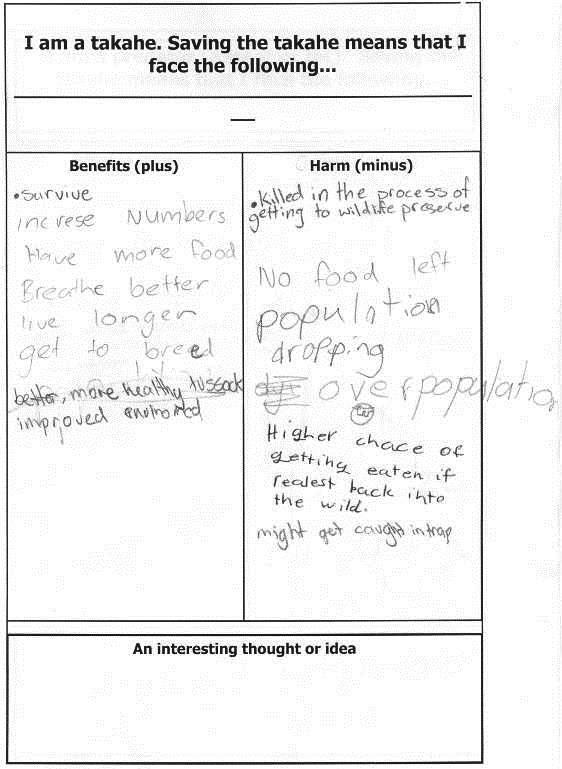 I am a takahe. Saving the takahe means that I
face the following...
Benefits (plus)
•survive
increse Numbers
Have more food
Breathe better
live longer
get to breed
better, more healthy tussock
improved
Harm (minus)
•killed in the process of
getting to wildlife preserve
No food left
population
dropping
overpopulation
Higher chace of
getting eaten if
realest back into
the wild.
might get caught in trap
An interesting thought or idea